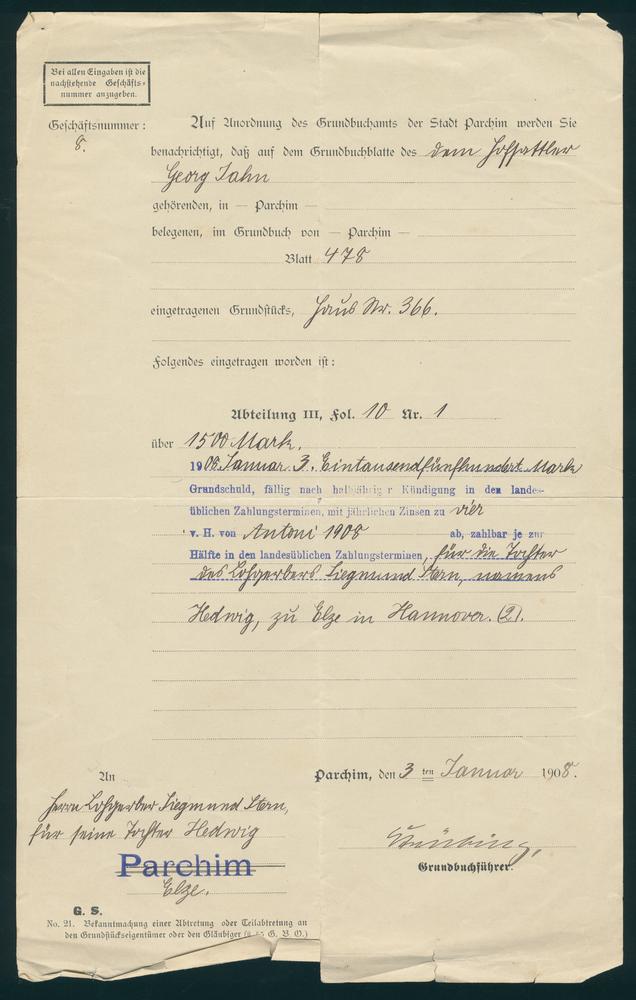 Bei allen Eingaben ist die
nachstehende Geschäfts-
nummer anzugeben.
Geschäftsnummer:
8.
Auf Anordnung des Grundbuchamts der Stadt Parchim werden Sie
benachrichtigt, daß auf dem Grundbuchblatte des dem Hofsattler
Georg Jahn
gehörenden, in — Parchim —
belegenen, im Grundbuch von — Parchim —
Blatt 478
eingetragenen Grundstücks, Haus Nr. 366.
Folgendes eingetragen worden ist:
Abteilung III, Fol. 10 Nr. 1
über 1500 Mark.
1908 Januar 3. Eintausendfünfhundert Mark
Grundschuld, fällig nach halbjähriger Kündigung in den landes-
üblichen Zahlungsterminen, mit jährlichen Zinsen zu vier
v. H. von Antoni 1908 ab, zahlbar je zur
Hälfte in den landesüblichen Zahlungsterminen, für die Tochter
des Lohgerbers Siegmund Stern, namens
Hedwig, zu Elze in Hannover. (2).
An
Herrn Lohgerber Siegmund Stern,
für seine Tochter Hedwig
Parchim
Elze.
Parchim, den 3 ten Januar 1908.
Grundbuchführer.
G. S.
No. 21. Bekanntmachung einer Abtretung oder Teilabtretung an
den Grundstückseigentümer oder den Gläubiger (§ 55 G. B. O.)